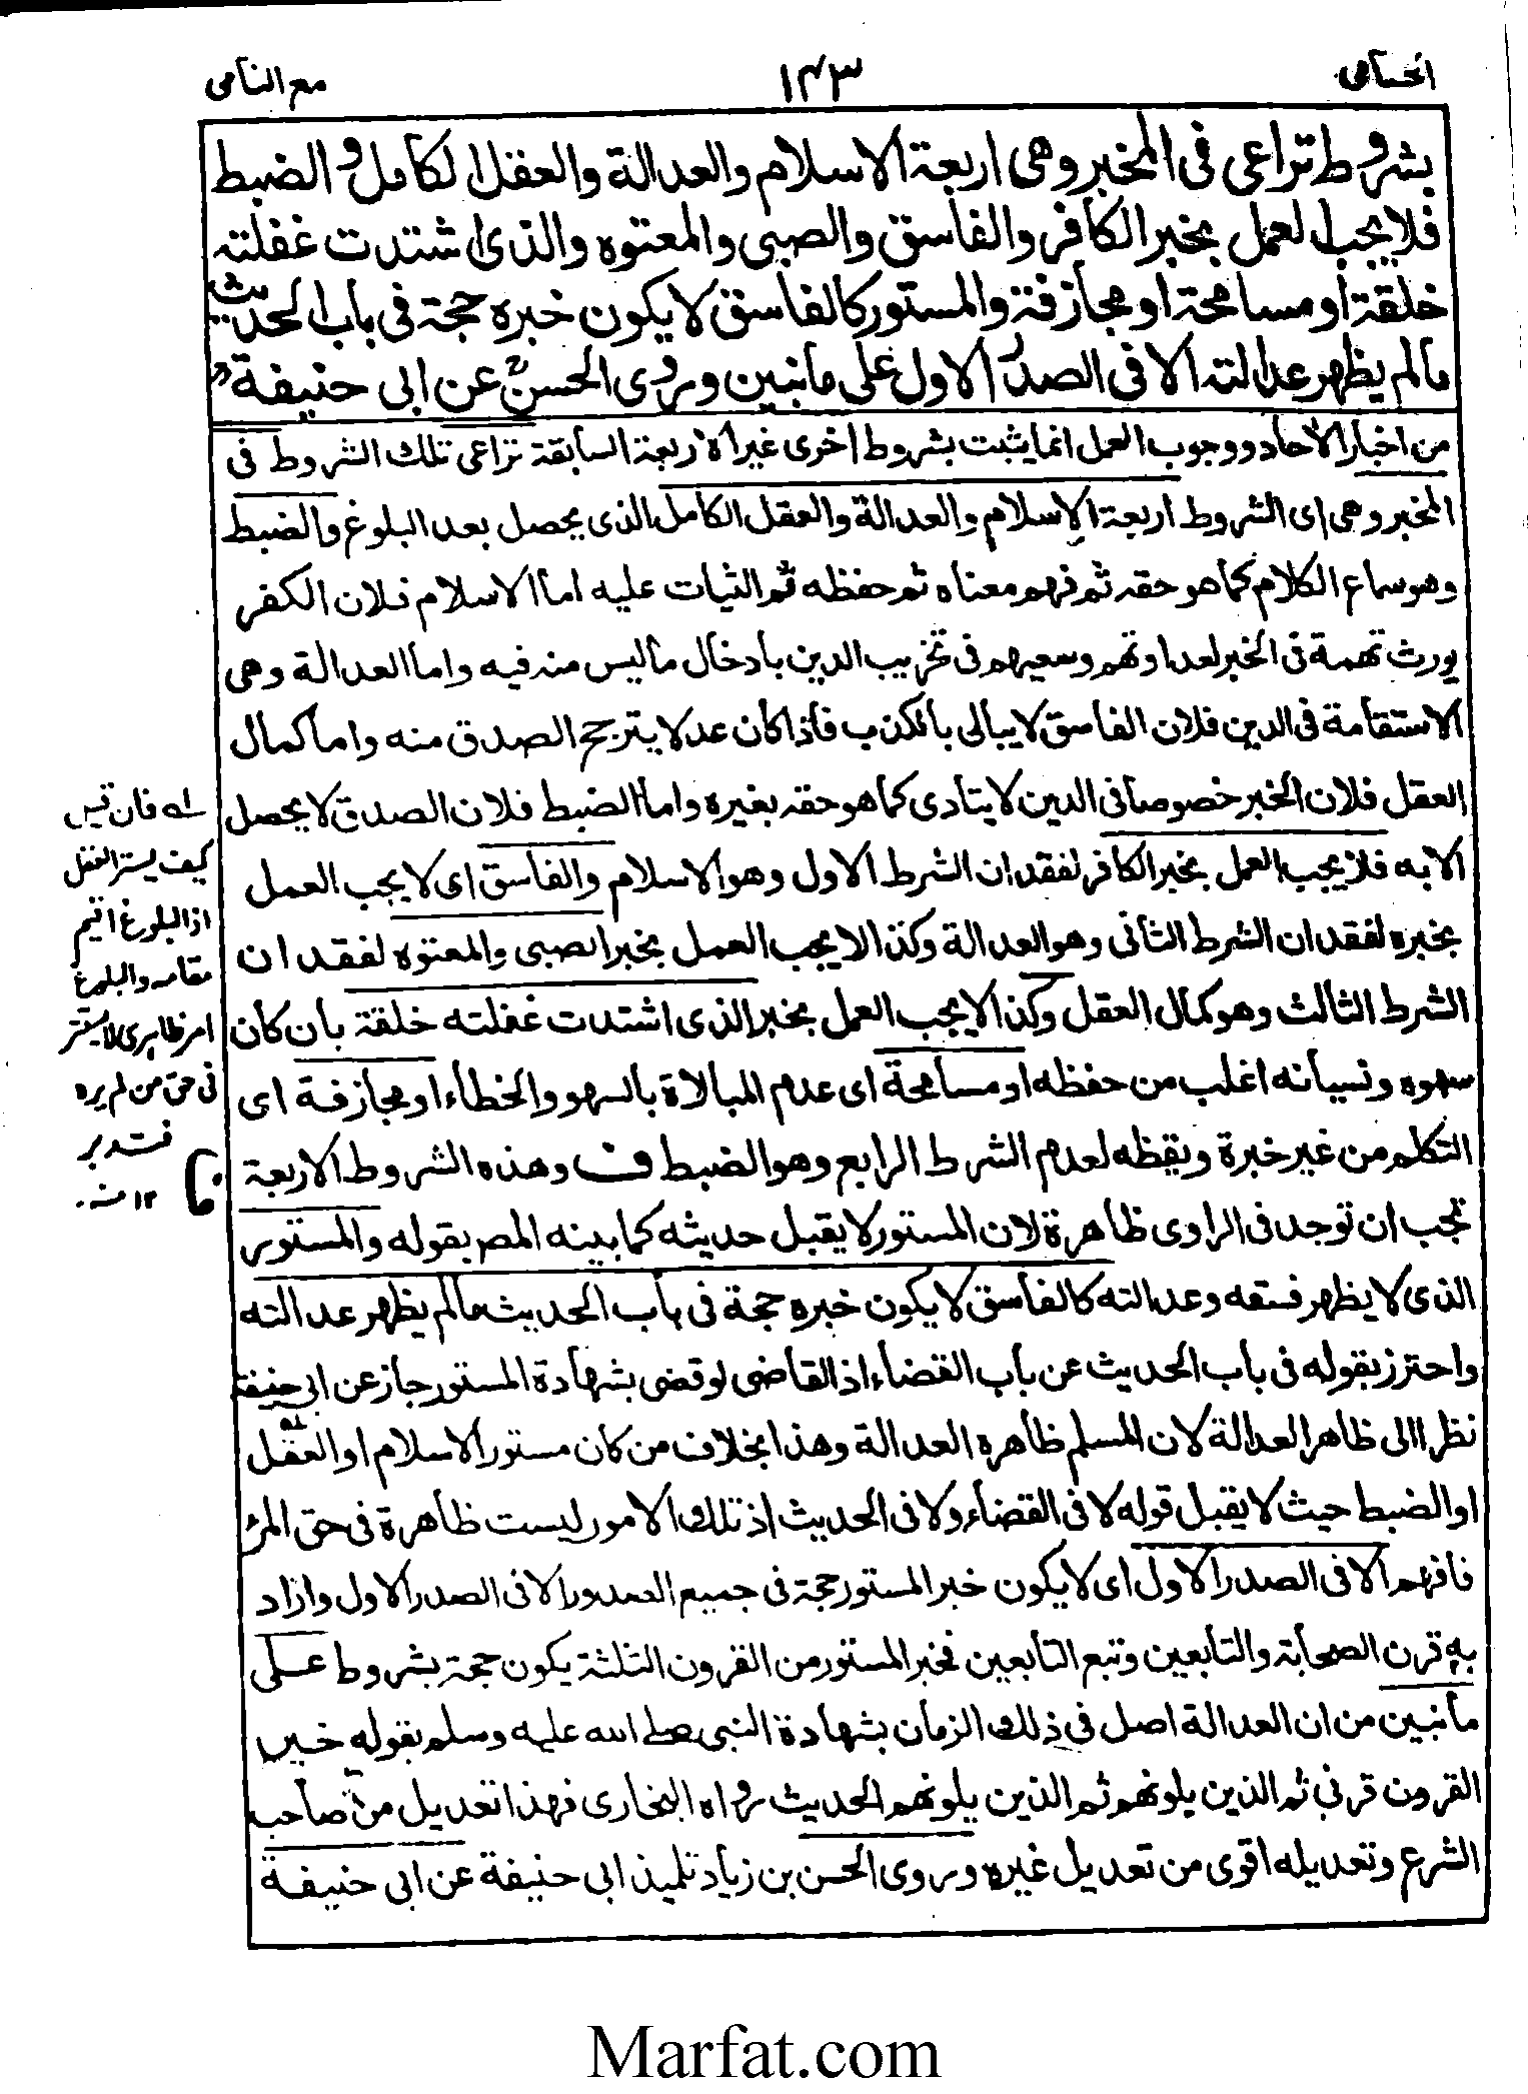 الحسامى
١٤٣
مع النامى
بشروط تراعى فى المخبر وهى اربعة الاسلام والعدالة والعقل الكامل والضبط
فلا يجب العمل بخبر الكافر والفاسق والصبى والمعتوه والذى اشتدت غفلته
خلقة او مسامحة او مجازفة والمستور كالفاسق لا يكون خبره حجة فى باب الحديث
مالم يظهر عدالته الا فى الصدر الاول على ما نبين وروى الحسن عن ابى حنيفة
من اخبار الاحاد ووجوب العمل انما يثبت بشروط اخرى غير الاربعة السابقة تراعى تلك الشروط فى
المخبر وهى اى الشروط اربعة الاسلام والعدالة والعقل الكامل الذى يحصل بعد البلوغ والضبط
وهو سماع الكلام كما هو حقه ثم فهم معناه ثم حفظه ثم الثبات عليه اما الاسلام فلان الكفر
يورث تهمة فى الخبر لعداوتهم وسعيهم فى تخريب الدين بادخال ماليس منه فيه واما العدالة وهى
الاستقامة فى الدين فلان الفاسق لا يبالى بالكذب فاذا كان عدلا يترجح الصدق منه واما كمال
العقل فلان الخبر خصوصا فى الدين لا يتادى كما هو حقه بغيره واما الضبط فلان الصدق لا يحصل
الا به فلا يجب العمل بخبر الكافر لفقدان الشرط الاول وهو الاسلام والفاسق اى لا يجب العمل
بخبره لفقدان الشرط الثانى وهو العدالة وكذا لا يجب العمل بخبر الصبى والمعتوه لفقدان
الشرط الثالث وهو كمال العقل وكذا لا يجب العمل بخبر الذى اشتدت غفلته خلقة بان كان
سهوه ونسيانه اغلب من حفظه او مسامحة اى عدم المبالاة بالسهو والخطاء او مجازفة اى
التكلم من غير خبرة ويقظه لعدم الشرط الرابع وهو الضبط ف وهذه الشروط الاربعة
تجب ان توجد فى الراوى ظاهرة لان المستور لا يقبل حديثه كما بينه المصر بقوله والمستور
الذى لا يظهر فسقه وعدالته كالفاسق لا يكون خبره حجة فى باب الحديث مالم يظهر عدالته
واحترز بقوله فى باب الحديث عن باب القضاء اذ القاضى لو قضى بشهادة المستور جاز عن ابى حنيفة
نظرا الى ظاهر العدالة لان المسلم ظاهره العدالة وهذا بخلاف من كان مستور الاسلام او العقل
او الضبط حيث لا يقبل قوله لا فى القضاء ولا فى الحديث اذ تلك الامور ليست ظاهرة فى حق المرء
فافهم الا فى الصدر الاول اى لا يكون خبر المستور حجة فى جميع الصدور الا فى الصدر الاول واراد
به قرن الصحابة والتابعين وتبع التابعين فخبر المستور من القرون الثلثة يكون حجة بشروط على
ما نبين من ان العدالة اصل فى ذلك الزمان بشهادة النبى صلى الله عليه وسلم بقوله خير
القرون قرنى ثم الذين يلونهم ثم الذين يلونهم الحديث رواه البخارى فهذا تعديل من صاحب
الشرع وتعديله اقوى من تعديل غيره وروى الحسن بن زياد تلميذ ابى حنيفة عن ابى حنيفة
له فان قيل
كيف يستر العقل
اذ البلوغ اقيم
مقامه والبلوغ
امر ظاهرى لا يستتر
فى حق من لم يره
فتدبر
١٢ منه
Marfat.com